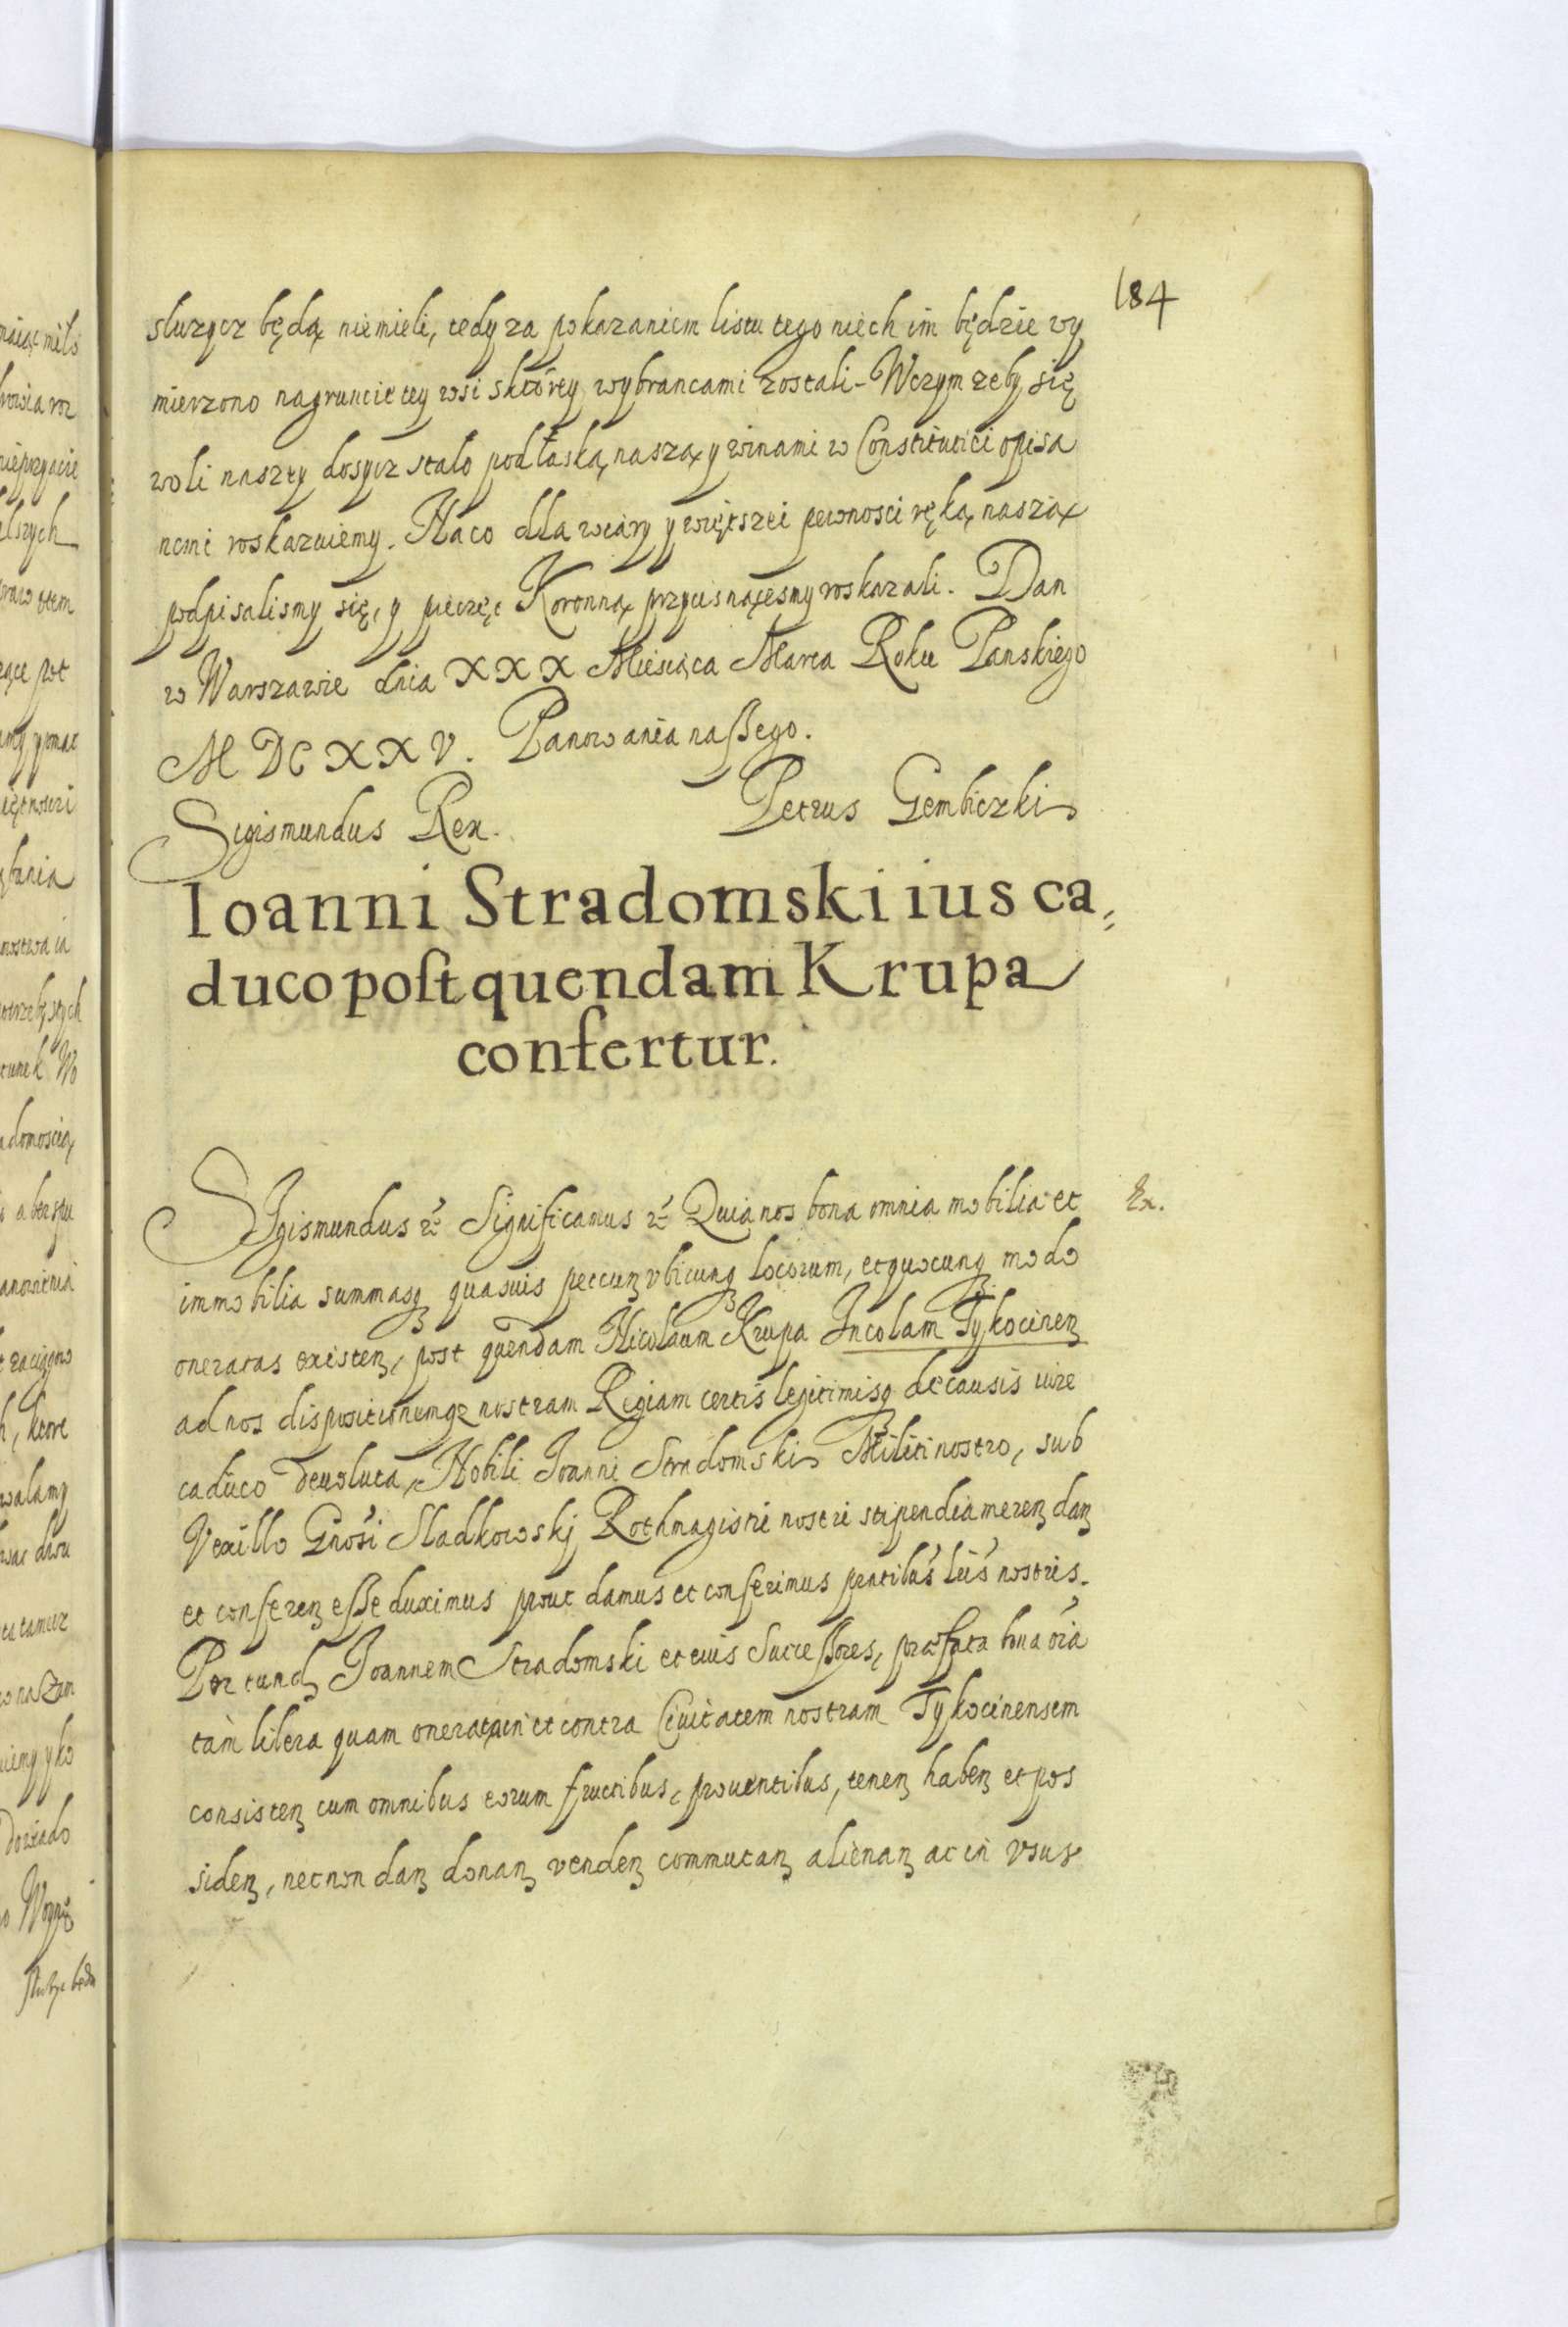 184
sluzycz będą niemieli, tedy za pokazaniem listu tego niech im będzie wy
mierzono nagruncie tey wsi sktórey wybrancami zostali - Wczym zeby się
woli naszey dosycz stalo pod łaską naszą y winami w Constitutici opisa
nemi roskazuiemy. Naco dla wiary y więtszei pewnosci ręką naszą
podpisalismy się, y pieczęc Koronną przycisnącesmy roskazali. Dan
w Warszawie dnia XXX Miesiąca Marca Roku Panskiego
MDCXXV. Panowania naßego.
Sigismundus Rex. Petrus Gembiczki
Ioanni Stradomski ius ca,,
duco post quendam Krupa
confertur.
Sigismundus etc Significamus etc Quia nos bona omnia mobilia et
Ex.
immobilia summasq quasuis peccunʒ vbicunq locorum, et quocunq modo
oneratas existenʒ, post quendam Nicolaum Krupa Incolam Tykocinenʒ
ad nos dispositionemqz nostram Regiam certis legitimisq de causis iure
caduco deuoluta, Nobili Joanni Stradomski Militi nostro, sub
Vexillo Gnosi Sladkowskj Rothmagistri nostri stipendia merenʒ danʒ
et conferenʒ eße duximus prout damus et conferimus pntibus Lris nostris.
Per eundʒ Joannem Stradomski et eius Succeßores, præfata bona oia
tàm libera quam onerata in et contra Ciuitatem nostram Tykocinensem
consistenʒ cum omnibus eorum fructibus, prouentibus, tenenʒ habenʒ et pos
sidenʒ, necnon danʒ donanʒ vendenʒ commutanʒ alienanʒ ac in vsus